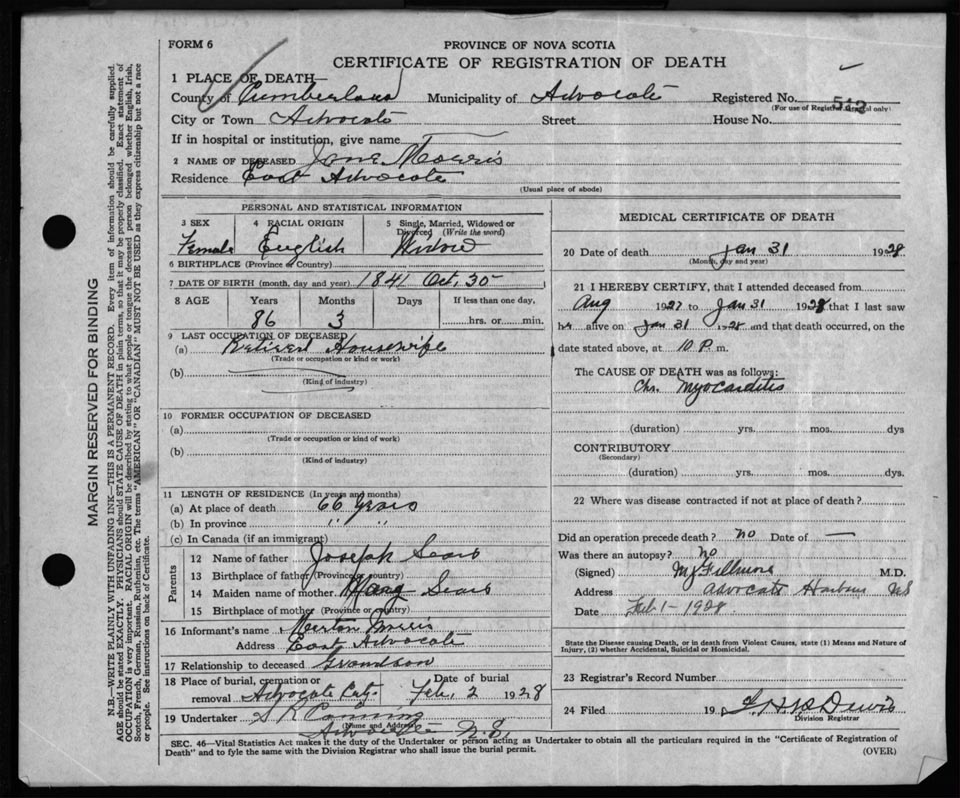 FORM 6
PROVINCE OF NOVA SCOTIA
CERTIFICATE OF REGISTRATION OF DEATH
1 PLACE OF DEATH—
County of Cumberland Municipality of Advocate Registered No. 542
(For use of Registrar General only)
City or Town Advocate Street House No.
If in hospital or institution, give name
2 NAME OF DECEASED Jane Morris
Residence East Advocate
(Usual place of abode)
PERSONAL AND STATISTICAL INFORMATION
3 SEX 4 RACIAL ORIGIN 5 Single, Married, Widowed or Divorced (Write the word)
Female English Widow
6 BIRTHPLACE (Province or Country)
7 DATE OF BIRTH (month, day and year) 1841 Oct, 30
8 AGE Years Months Days If less than one day,
86 3 hrs. or min.
9 LAST OCCUPATION OF DECEASED
(a) Retired Housewife
(Trade or occupation or kind or work)
(b)
(Kind of industry)
10 FORMER OCCUPATION OF DECEASED
(a)
(Trade or occupation or kind of work)
(b)
(Kind of industry)
11 LENGTH OF RESIDENCE (In years and months)
(a) At place of death 66 Years
(b) In province " "
(c) In Canada (if an immigrant)
Parents
12 Name of father Joseph Sears
13 Birthplace of father (Province or country)
14 Maiden name of mother Mary Sears
15 Birthplace of mother (Province or country)
16 Informant's name Merton Morris
Address East Advocate
17 Relationship to deceased Grandson
18 Place of burial, cremation or removal Advocate Date of burial Feb, 2 1928
19 Undertaker S R Canning
(Name and Address)
Advocate N.S.
MEDICAL CERTIFICATE OF DEATH
20 Date of death Jan 31 1928
(Month, day and year)
21 I HEREBY CERTIFY, that I attended deceased from
Aug 1927 to Jan 31 1928 that I last saw
her alive on Jan 31 1928 and that death occurred, on the
date stated above, at 10 P. m.
The CAUSE OF DEATH was as follows:
Chr. Myocarditis
(duration) yrs. mos. dys
CONTRIBUTORY
(Secondary)
(duration) yrs. mos. dys.
22 Where was disease contracted if not at place of death?
Did an operation precede death? No Date of —
Was there an autopsy? No
(Signed) Fillmore M.D.
Address Advocate Harbour NS
Date Feb 1 - 1928
State the Disease causing Death, or in death from Violent Causes, state (1) Means and Nature of
Injury, (2) whether Accidental, Suicidal or Homicidal.
23 Registrar's Record Number
24 Filed 19
Division Registrar
SEC. 46—Vital Statistics Act makes it the duty of the Undertaker or person acting as Undertaker to obtain all the particulars required in the "Certificate of Registration of
Death" and to fyle the same with the Division Registrar who shall issue the burial permit. (OVER)
MARGIN RESERVED FOR BINDING
N.B.—WRITE PLAINLY WITH UNFADING INK—THIS IS A PERMANENT RECORD. Every item of information should be carefully supplied.
AGE should be stated EXACTLY. PHYSICIANS should STATE CAUSE OF DEATH in plain terms, so that it may be properly classified. Exact statement of
OCCUPATION is very important. RACIAL ORIGIN will be described by stating to what people or tongue the deceased person belonged whether English, Irish,
Scotch, French, German, Russian, Ruthenian, etc. The terms "AMERICAN" OR "CANADIAN" MUST NOT BE USED as they express citizenship but not a race
or people. See instructions on back of Certificate.